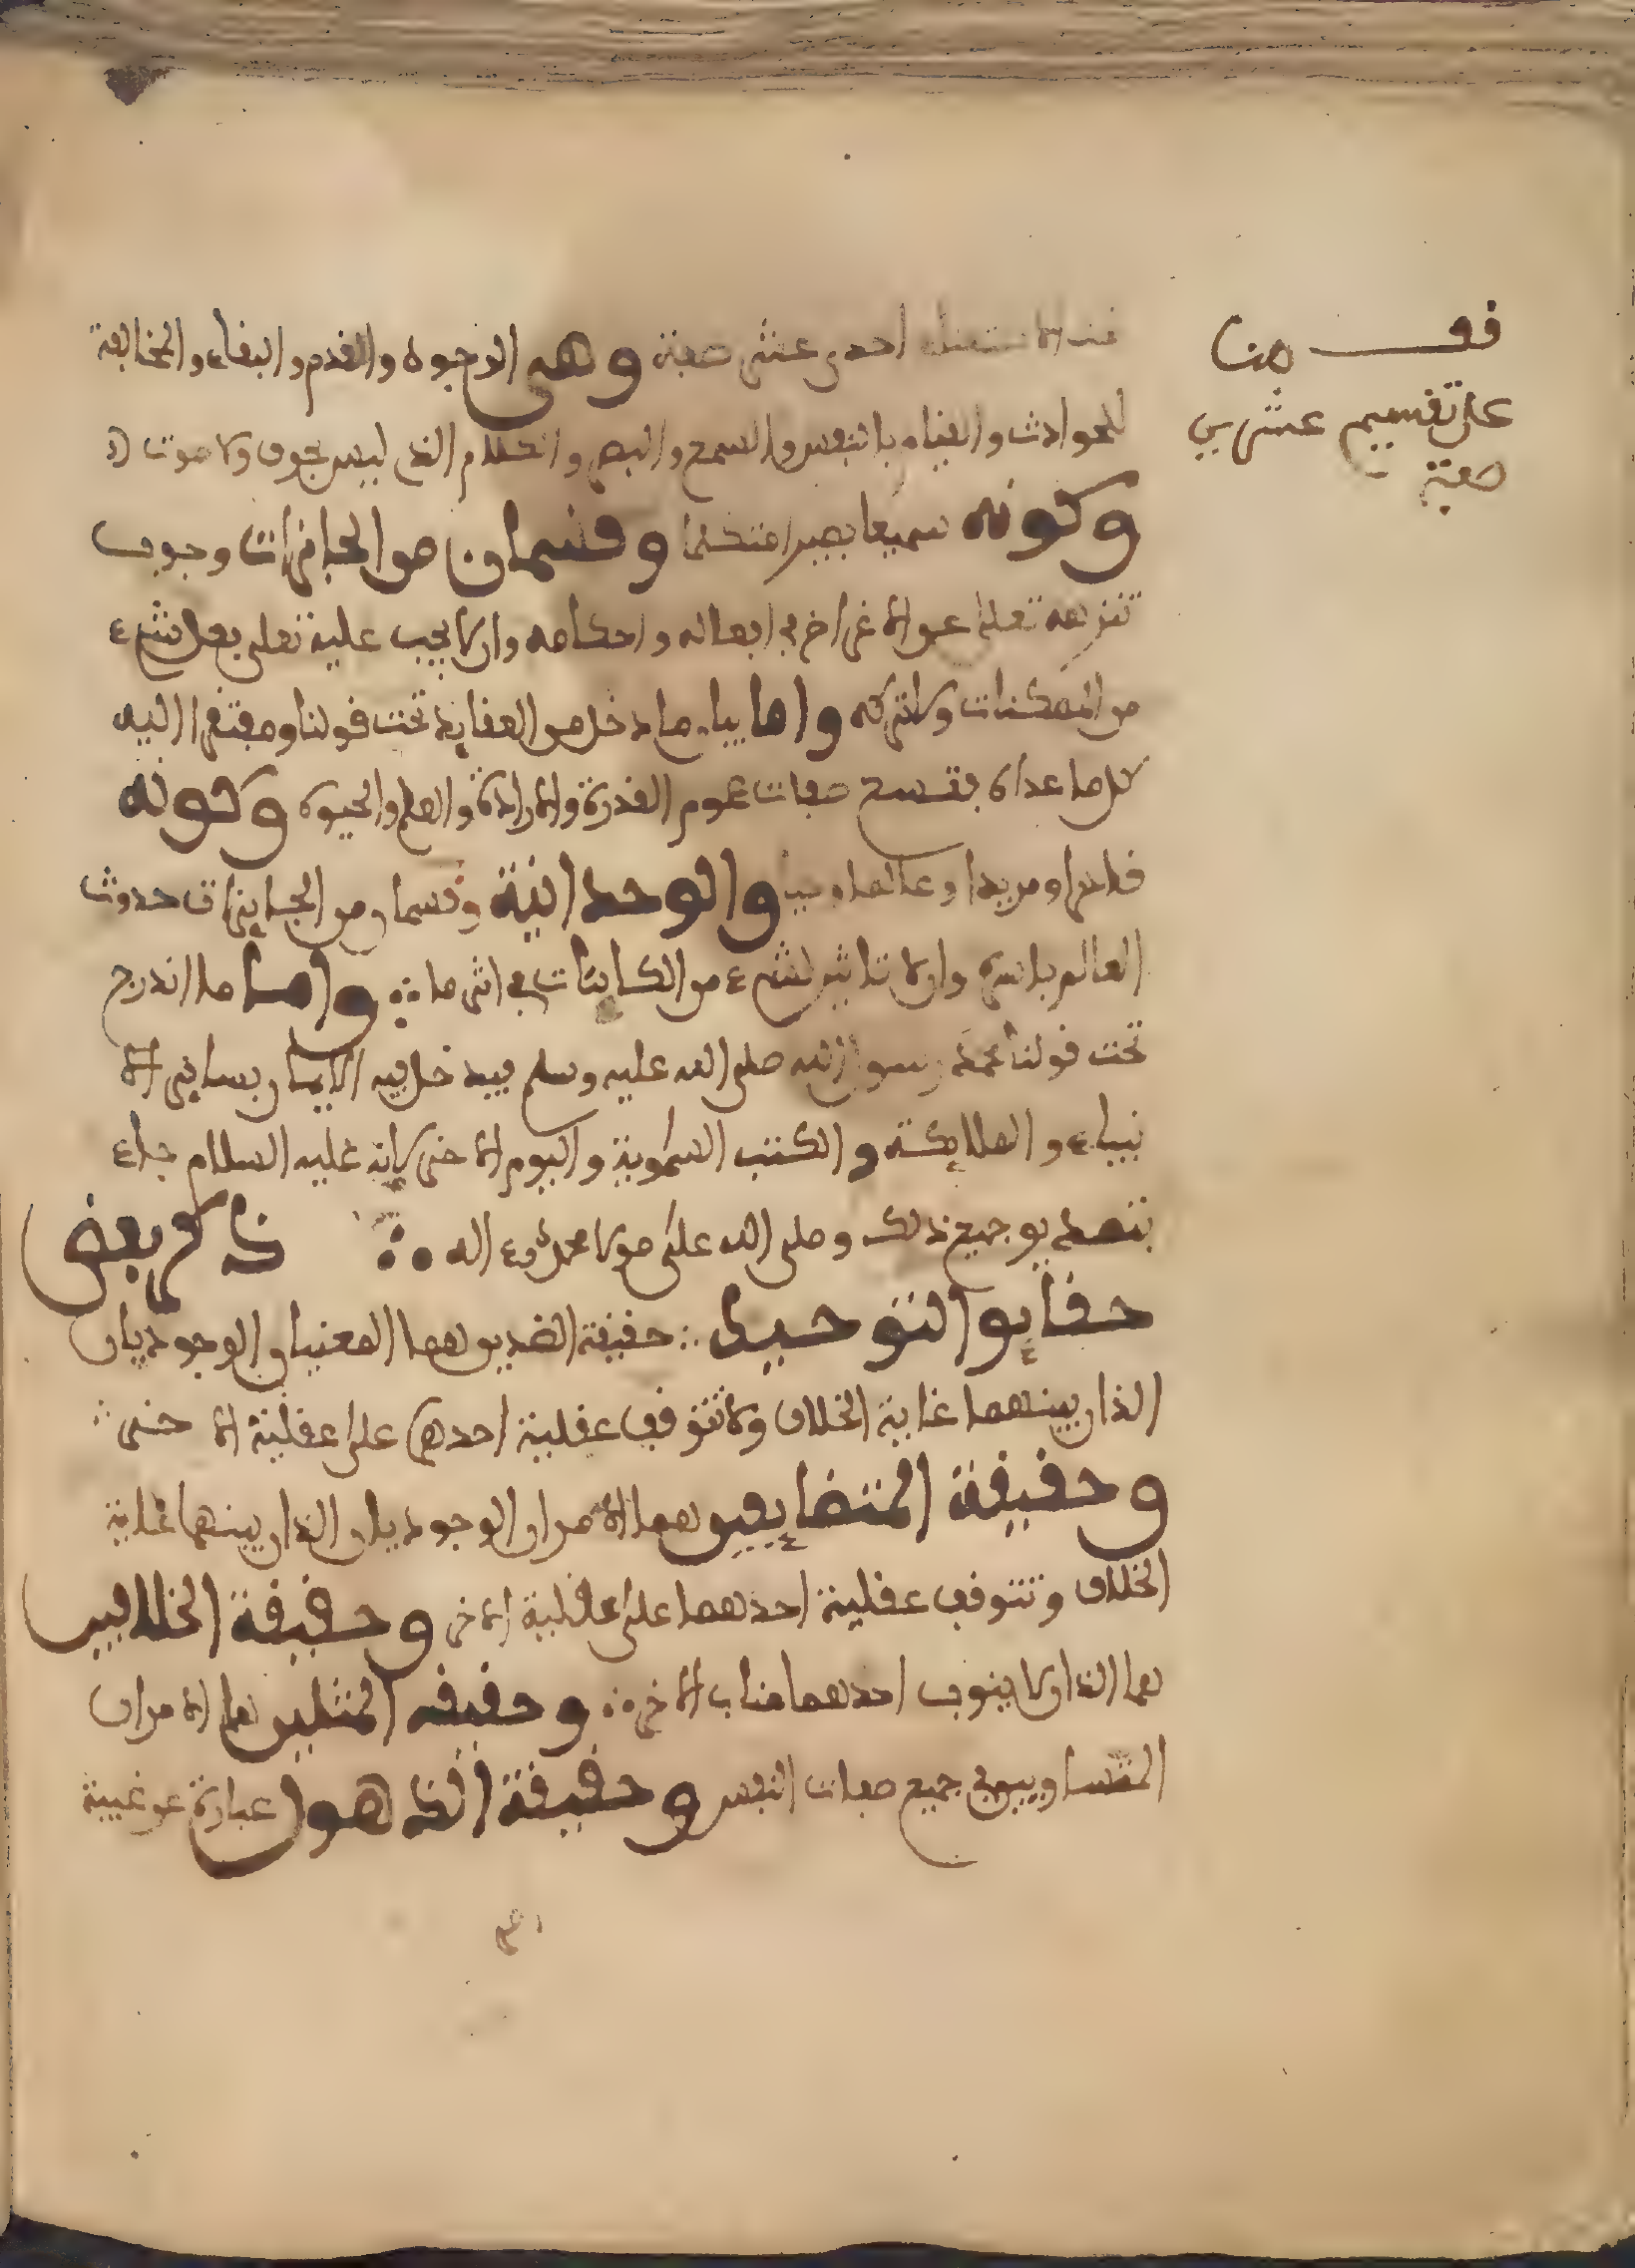 فف هنا
على تقسيم عشرين
صفة
الاستغناء احدى عشر صفة وهى الوجود والقدم والبقاء والمخالفة
للحوادث والقيام بالنفس والسمع والبصر والكلام الذى ليس بحرف ولا صوت
وكونه سميعا بصيرا متكلما وقسمان من الجائزات وجوب
تنزهه تعلى عن الاغراض فى افعاله واحكامه وان لا يجب عليه تعلى فعل شىء
من الممكنات ولا تركه واما بيان ما دخل من العقايد تحت قولنا ومفتقرا اليه
كل ما عداه فتسع صفات عموم القدرة والارادة والعلم والحيوة وكونه
قادرا ومريدا وعالما وحيا والوحدانية وقسمان من الجايزات حدوث
العالم باسره وان لا تاثير لشىء من الكاينات فى اثر ما واما ما اندرج
تحت قولنا محمد رسول الله صلى الله عليه وسلم فيدخل فيه الايمان بساير الا
نبياء والملايكة والكتب السموية واليوم الاخر لانه عليه السلام جاء
بتصديق جميع ذلك وصلى الله على مولا محمد وء اله ذكر بعض
حقايق التوحيد حقيقة الضدين هما المعنيان الوجوديان
الذان بينهما غاية الخلاف ولا تتوقف عقلية احدهما على عقلية الا خر
وحقيقة المتضايفين هما الامران الوجوديان الذان بينهما غاية
الخلاف وتتوقف عقلية احدهما على عقلية الاخر وحقيقة الخلافين
هما الذان لا ينوب احدهما مناب الاخر وحقيقه المثلين هما الامران
المتساويين فى جميع صفات النفس وحقيقة الذهول عبارة عن غيبة